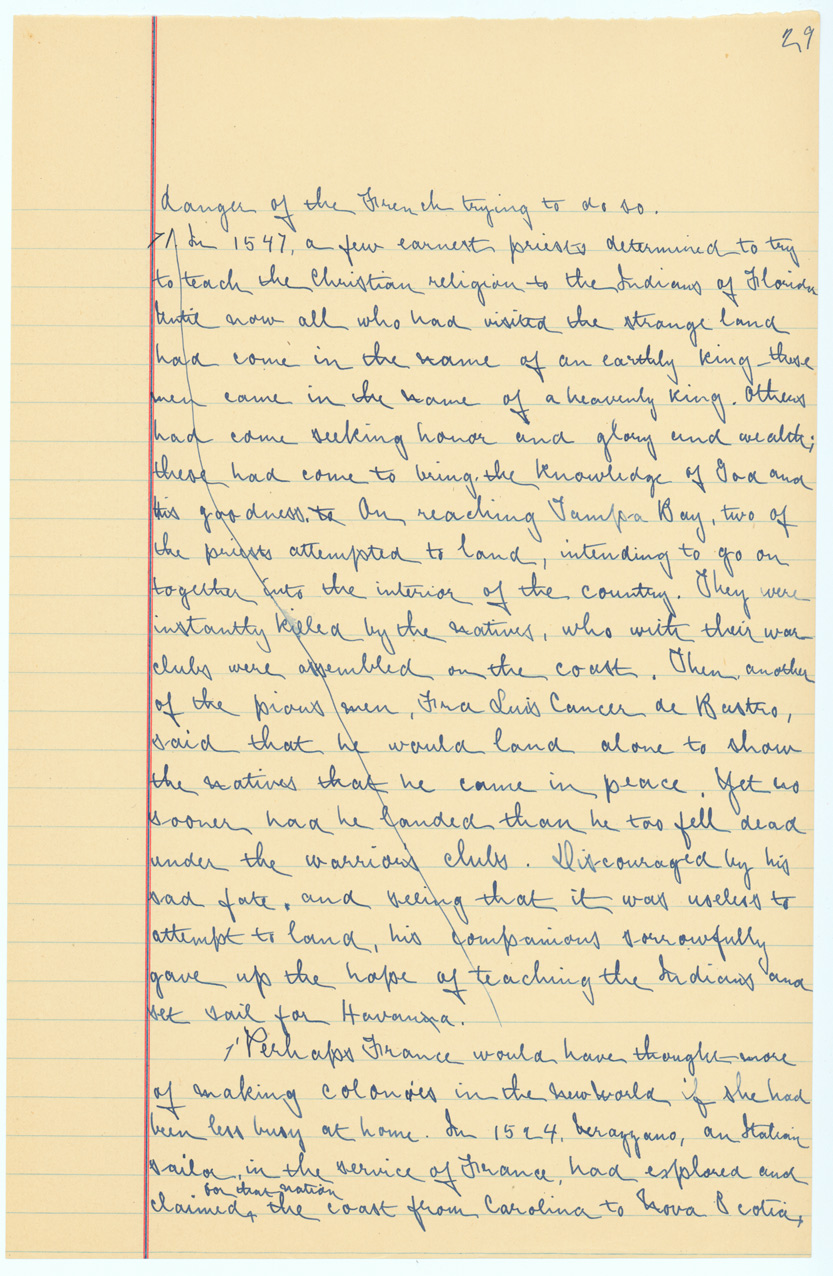 29
danger of the French trying to do so.
In 1547, a few earnest priests determined to try
to teach the Christian religion to the Indians of Florida
Until now all who had visited the strange land
had come in the name of an earthly king - these
men came in the name of a heavenly king. Others
had come seeking honor and glory and wealth;
these had come to bring the knowledge of God and
His goodness. to On reaching Tampa Bay, two of
the priests attempted to land, intending to go on
together into the interior of the country. They were
instantly killed by the natives, who with their war
clubs were assembled on the coast. Then another
of the pious men, Fra Luis Cancer de Bastro,
said that he would land alone to show
the natives that he came in peace. Yet no
sooner had he landed than he too fell dead
under the warrior's clubs. Discouraged by his
sad fate, and seeing that it was useless to
attempt to land, his companions sorrowfully
gave up the hope of teaching the Indians and
set sail for Havanna.
Perhaps France would have thought more
of making colonies in the new World if she had
been less busy at home. In 1524, Verazzano, an Italian
sailor in the service of France, had explored and
for that nation
claimed the coast from Carolina to Nova Scotia,